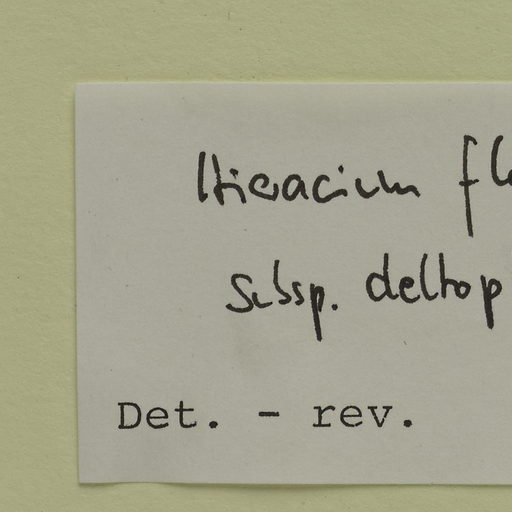 Hieracium fl
subsp. deltop
Det. - rev.